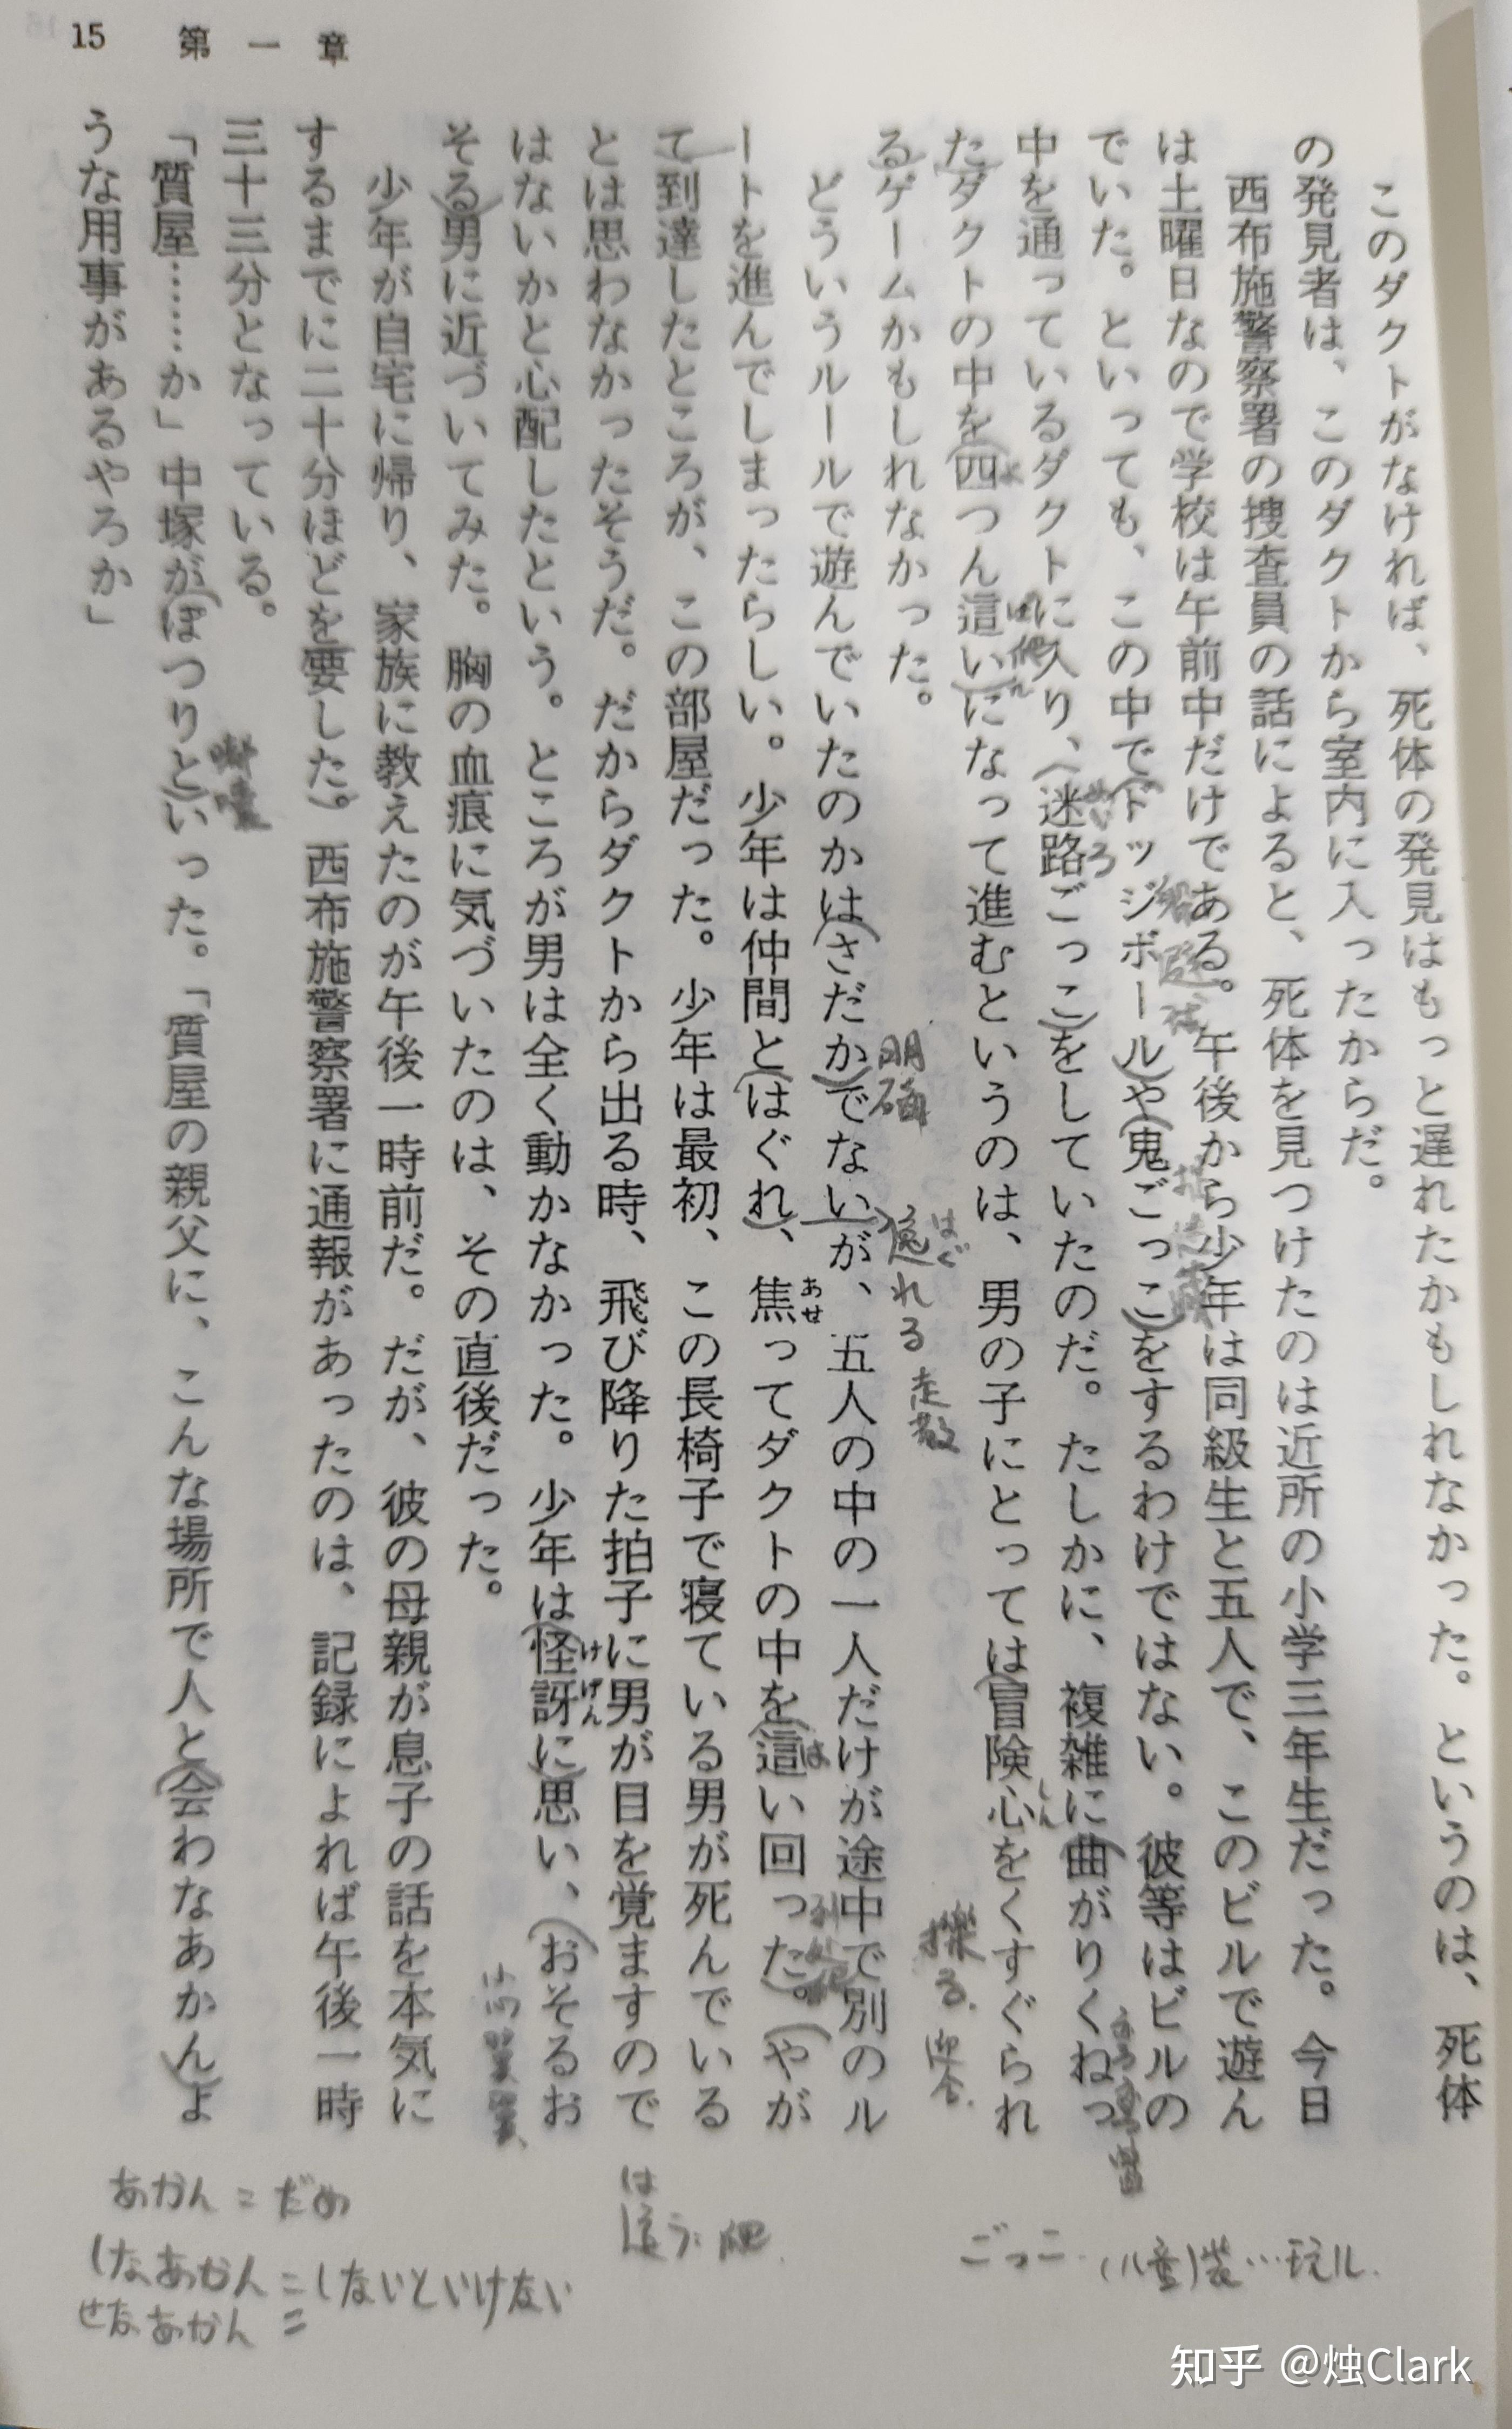 15　第一章
このダクトがなければ、死体の発見はもっと遅れたかもしれなかった。というのは、死体
の発見者は、このダクトから室内に入ったからだ。
西布施警察署の捜査員の話によると、死体を見つけたのは近所の小学三年生だった。今日
は土曜日なので学校は午前中だけである。午後から少年は同級生と五人で、このビルで遊ん
でいた。といっても、この中でドッジボールや鬼ごっこをするわけではない。彼等はビルの
中を通っているダクトに入り、迷路ごっこをしていたのだ。たしかに、複雑に曲がりくねっ
たダクトの中を四つん這いになって進むというのは、男の子にとっては冒険心をくすぐられ
るゲームかもしれなかった。
どういうルールで遊んでいたのかはさだかでないが、五人の中の一人だけが途中で別のル
ートを進んでしまったらしい。少年は仲間とはぐれ、焦ってダクトの中を這い回った。やが
て到達したところが、この部屋だった。少年は最初、この長椅子で寝ている男が死んでいる
とは思わなかったそうだ。だからダクトから出る時、飛び降りた拍子に男が目を覚ますので
はないかと心配したという。ところが男は全く動かなかった。少年は怪訝に思い、おそるお
そる男に近づいてみた。胸の血痕に気づいたのは、その直後だった。
少年が自宅に帰り、家族に教えたのが午後一時前だ。だが、彼の母親が息子の話を本気に
するまでに二十分ほどを要した。西布施警察署に通報があったのは、記録によれば午後一時
三十三分となっている。
「質屋……か」中塚がぽつりといった。「質屋の親父に、こんな場所で人と会わなあかんよ
うな用事があるやろか」
あせ
けげん
よ
めいろ
しん
は
明確
はぐ
逸れる 走散
擽る
ごっこ
は
這う 爬
あかん = だめ
しな、あかん = しないといけない
せな、あかん =
知乎 @烛Clark